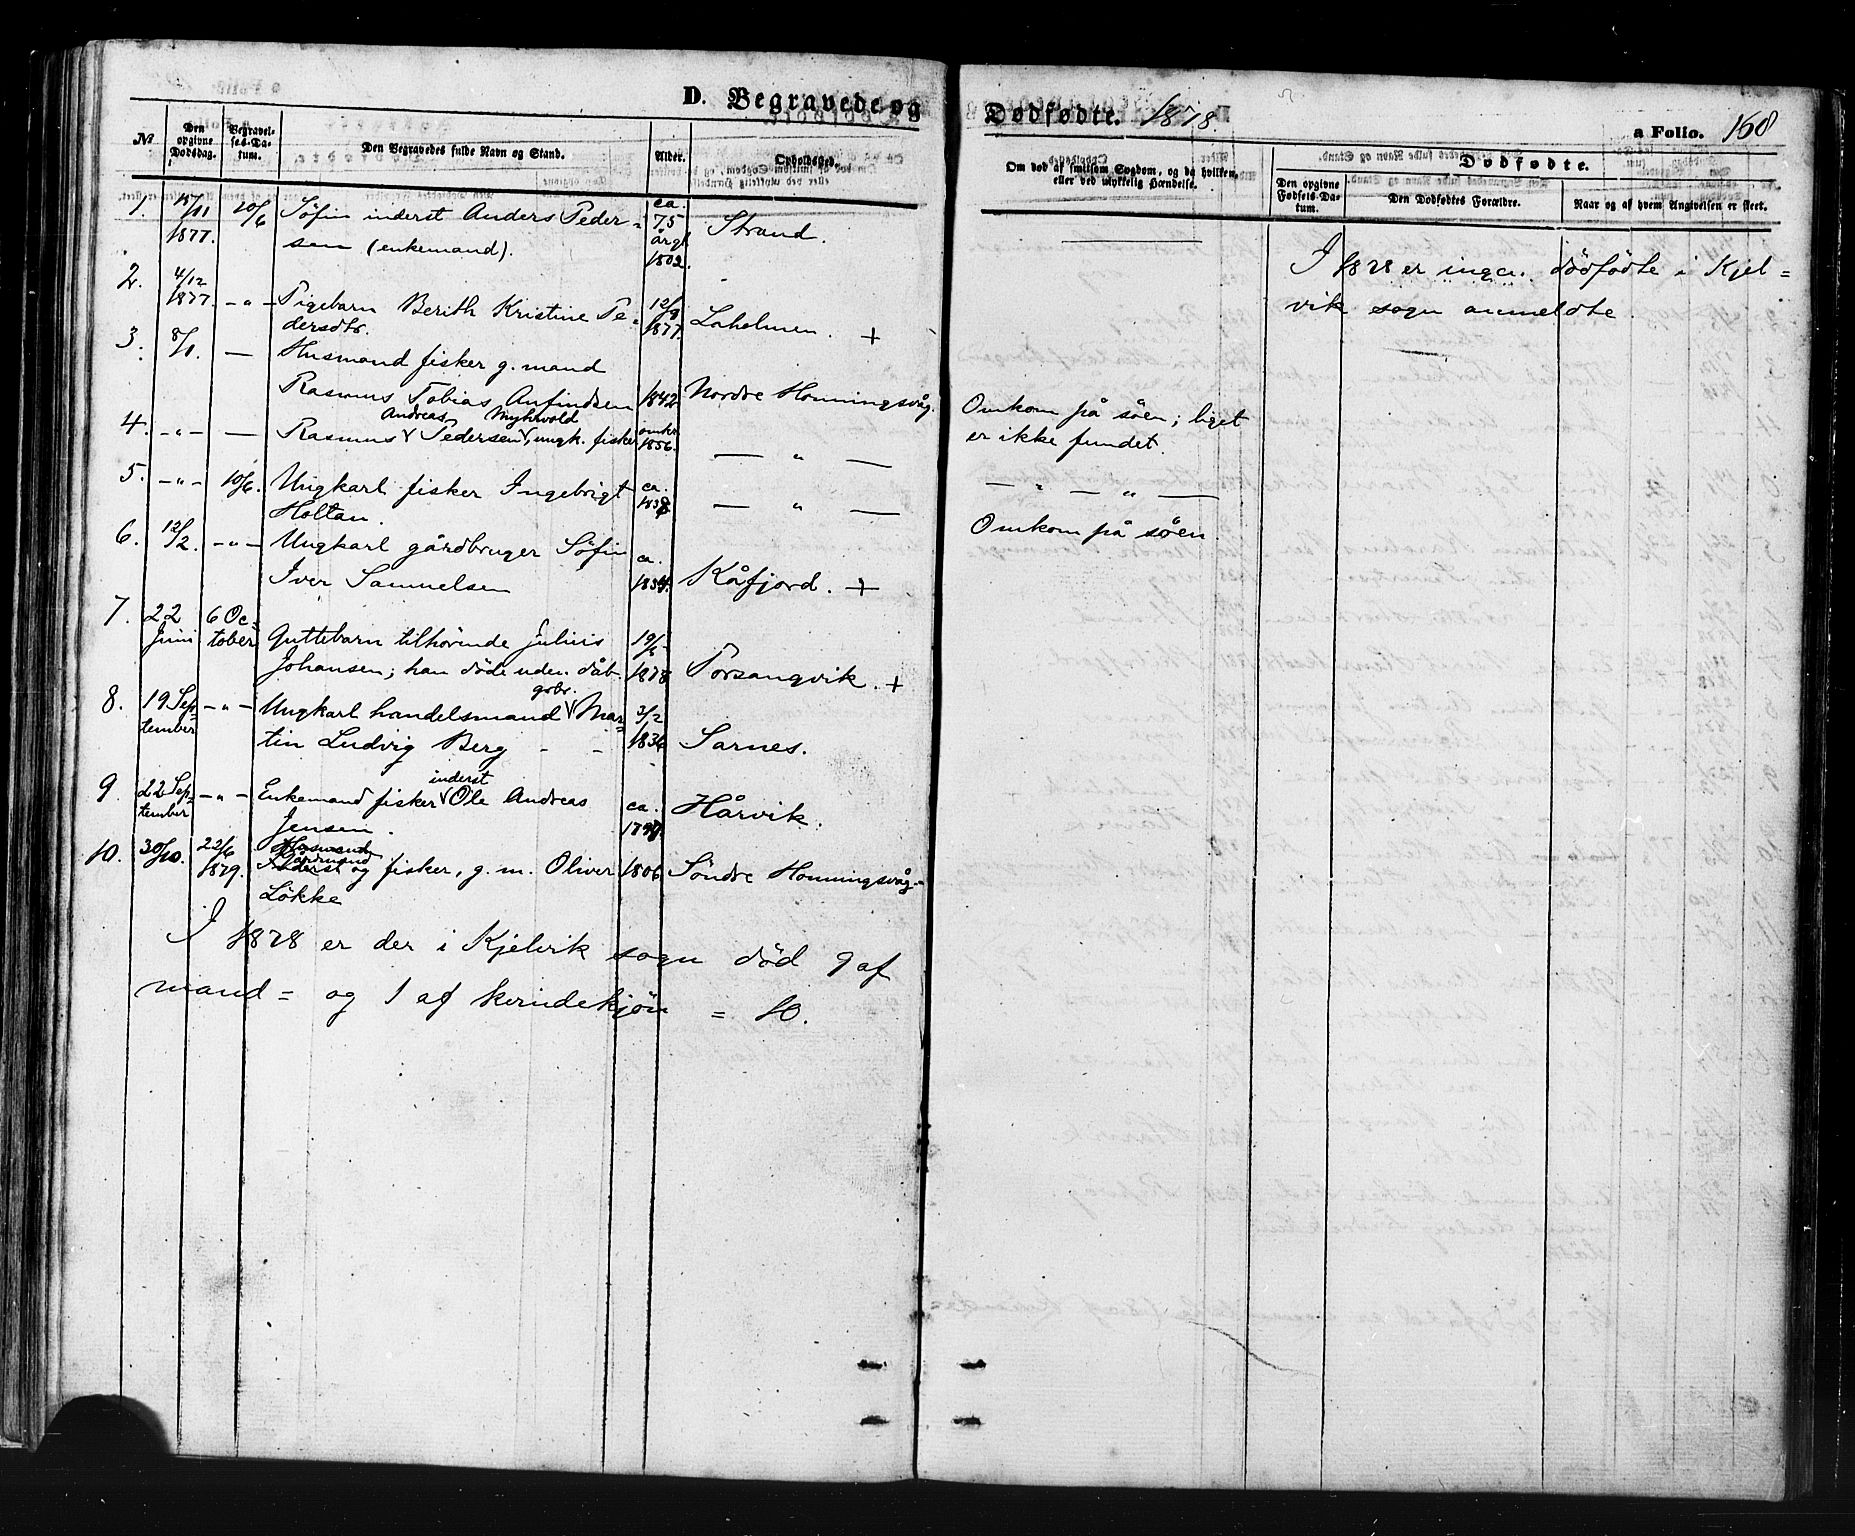 D. Begravede og Dødfødte. 1878. a Folio. 168
№
Den opgivne Dødsdag.
Begravelses-Datum.
Den Begravedes fulde Navn og Stand.
Alder.
Opholdssted.
Om død af smitsom Sygdom, og da hvilken, eller ved ulykkelig Hændelse.
Dødfødte.
Den opgivne Fødsels-Datum.
Den Dødfødtes Forældre.
Naar og af hvem Angivelsen er skeet.
1. 11 1877. 20/6 Søfin inderst Anders Peder= ca. 75 årgl 1802. Strand.
sen (enkemand).
2. 4/12 1877. -"- Pigebarn Berith Kristine Pe= 12/9 1877. Laholmen. +
dersdtr.
3. 8/1. — Husmand fisker g. mand
Rasmus Tobias Anfindsen 1842 Nordre Honningsvåg. Omkom på søen; liget
er ikke fundet.
Andreas Myhrvold
4. -"- — Rasmus V Pedersen V, ungk. fisker omkr. 1856. — " —
— " — " —
5. -"- 10/6. Ungkarl fisker Ingebrigt ca. — " —
Holtan.
Omkom på søen.
6. 12/2. -"- Ungkarl gårdbruger Søfin ca.
Iver Samuelsen 1854. Kåfjord. +
7. 22 Juni 6 October Guttebarn tilhørende Julius 19/6
Johansen; han døde uden dåb. 1878 Porsangvik. +
gbr.
8. 19 September -"- Ungkarl handelsmand V Mar= 3/2
tin Ludvig Berg - - 1836 Sarnes.
inderst
9. 22 September -"- Enkemand fisker V Ole Andreas ca.
Jensen. Hårvik.
Husmand
Gårdmand
10. 30/10. 22/6 1879. Inderst og fisker, g. m. Oliver 1806 Søndre Honningsvåg.
Løkke
I 1878 er der i Kjelvik sogn død 9 af
mand= og 1 af kvindekjøn = 10.
I 1878 er ingen dødfødte i Kjel=
vik sogn anmeldte.